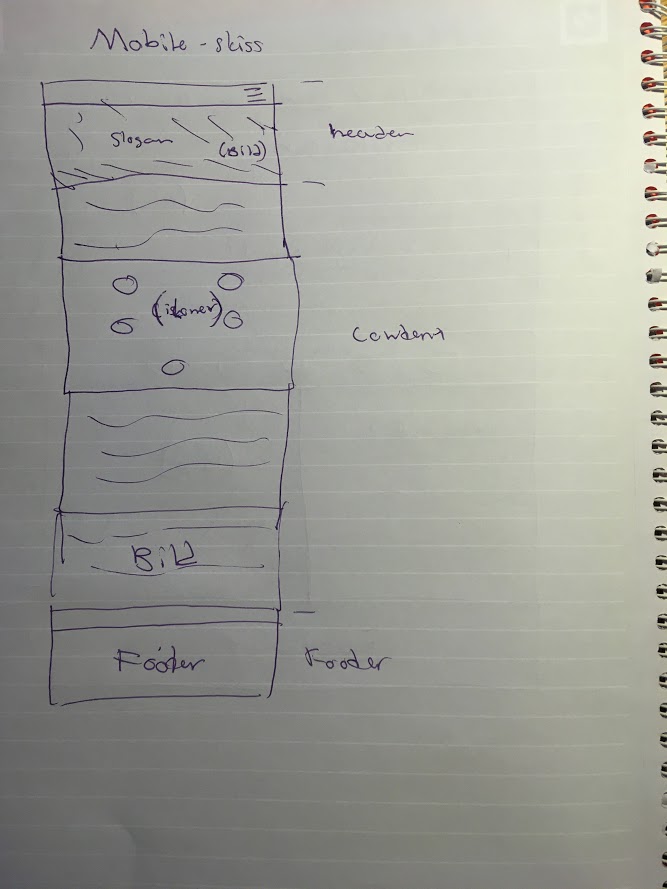 Mobile - skiss
slogan
(Bild)
header
(ikoner)
Content
Bild
Footer
Footer